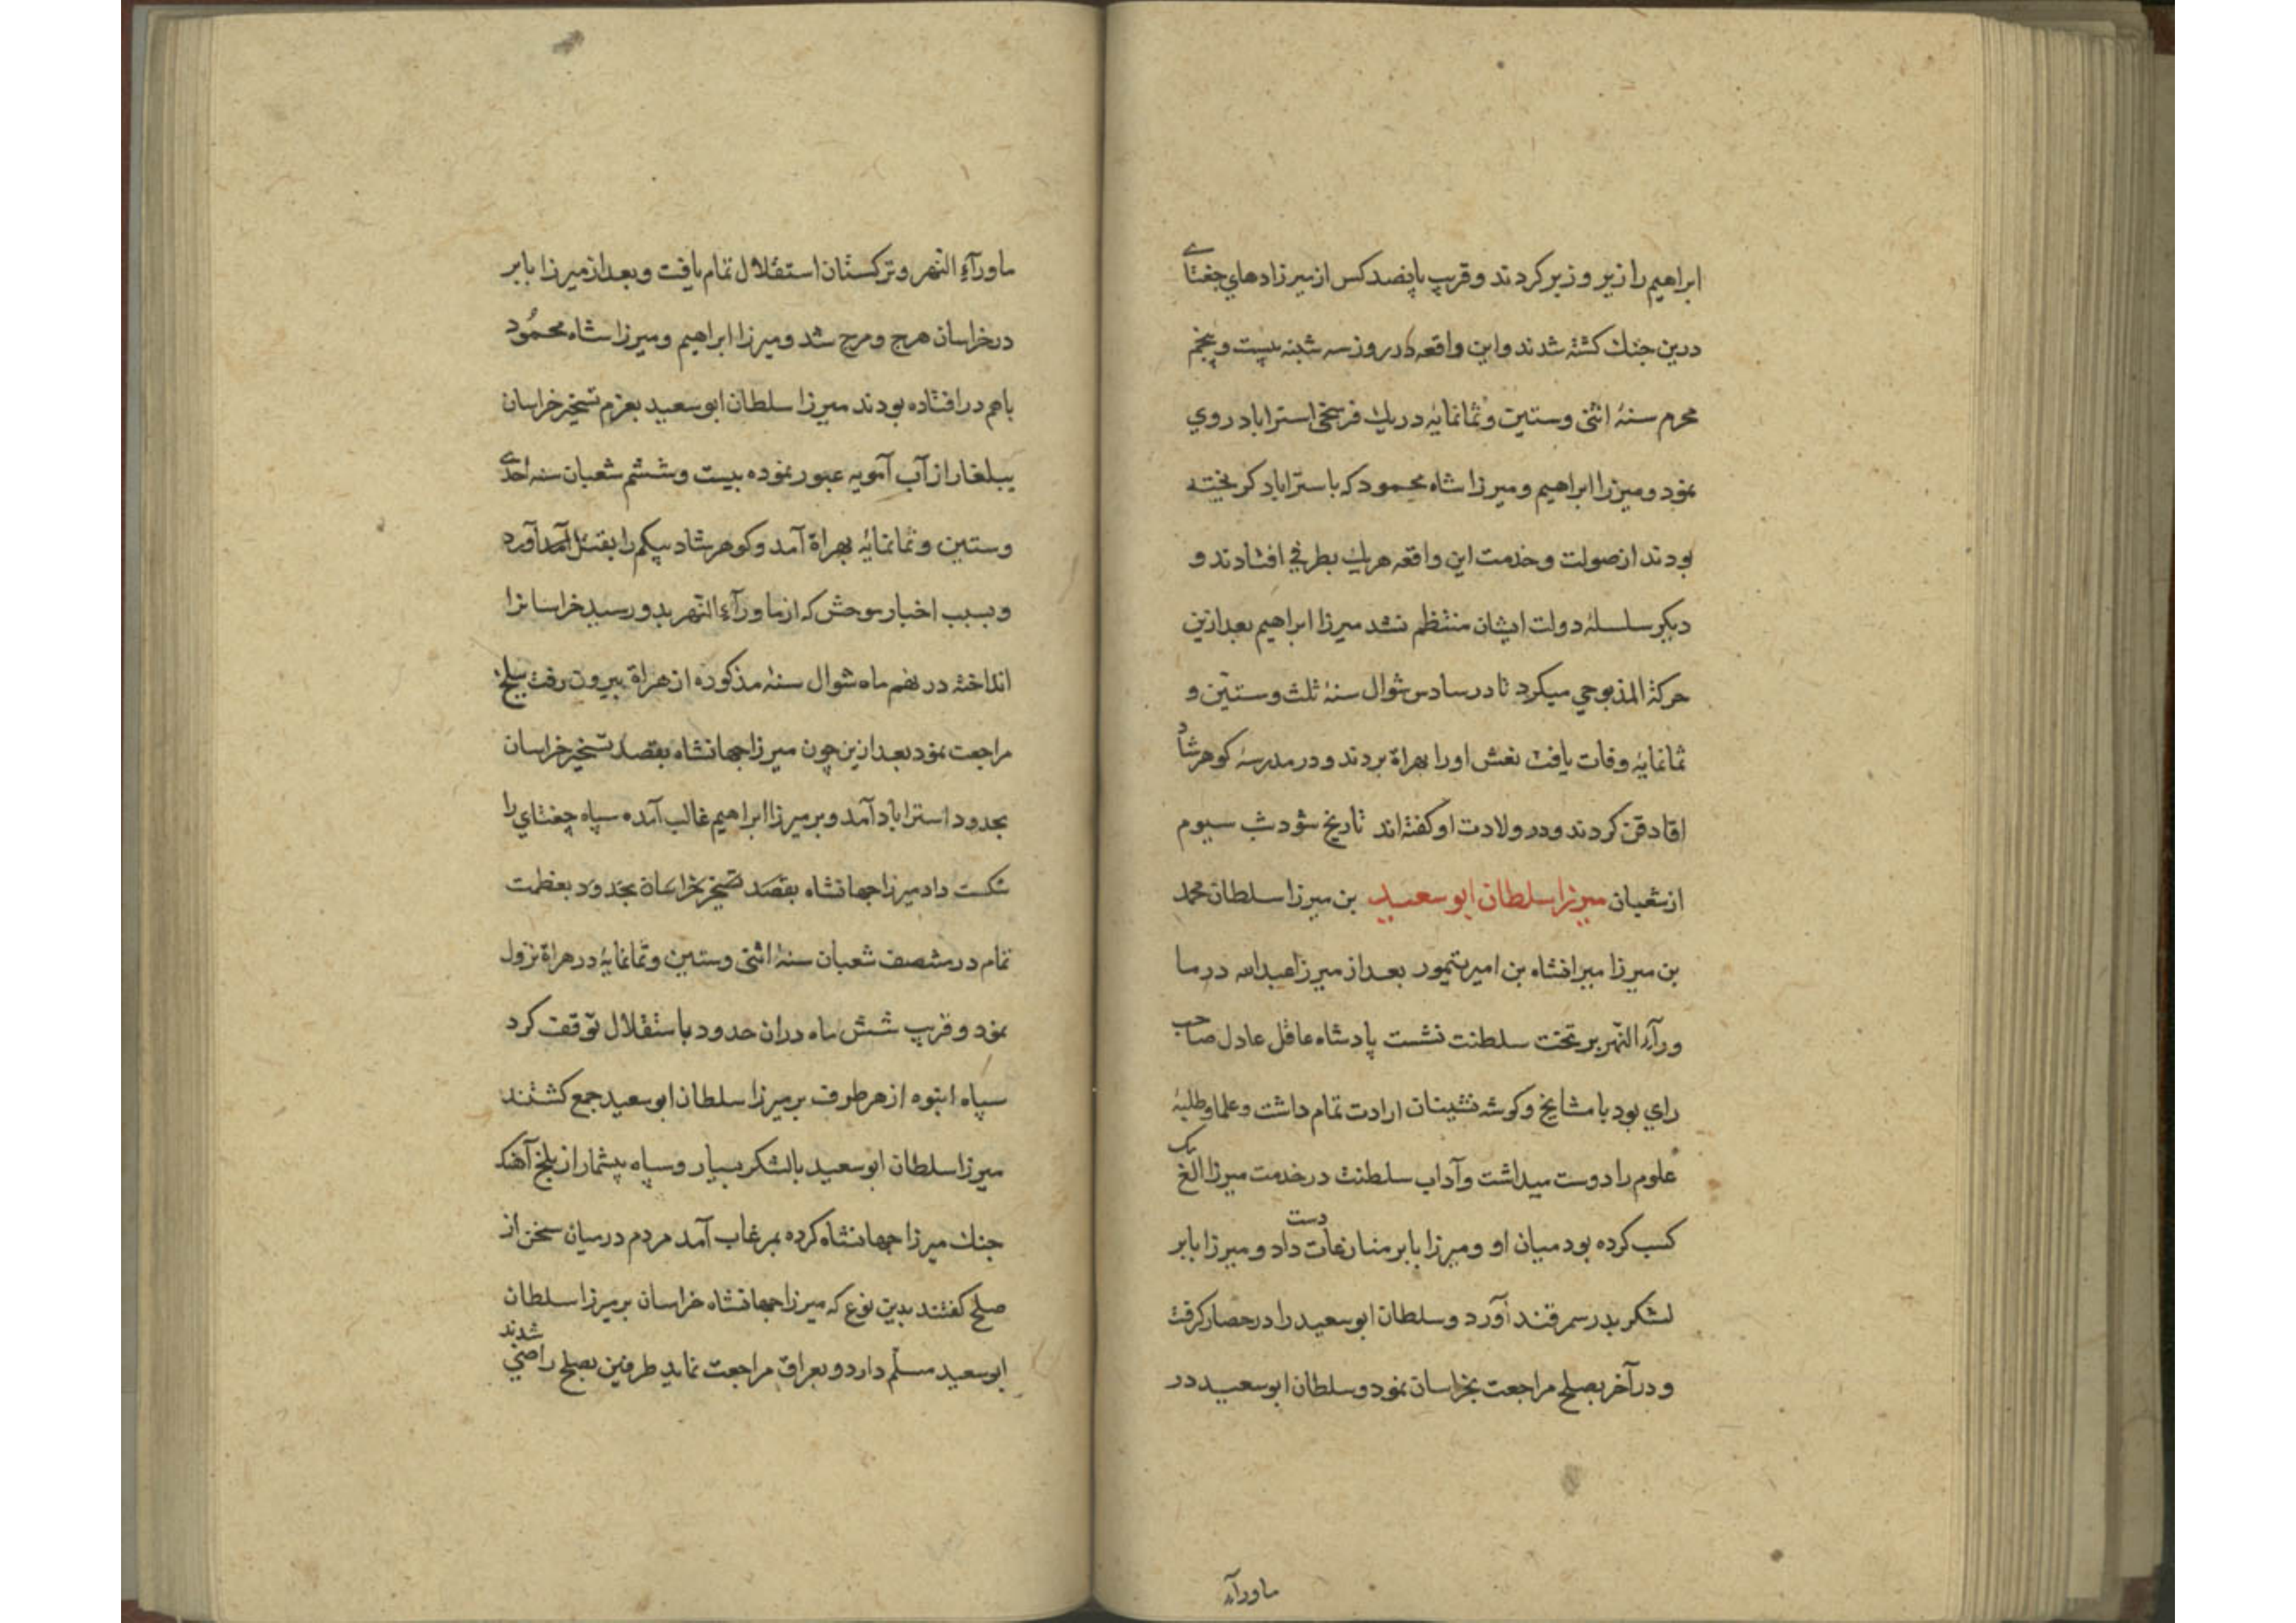 ابراهیم را زیر و زبر کردند و قریب پانصد کس از میرزادهای جغتای
درین جنك کشته شدند و این واقعه در روز سه شنبه بیست و پنجم
محرم سنۀ اثنی وستین وثمانمایه در یك فرسخی استراباد روی
نمود و میرزا ابراهیم و میرزا شاه محمود که باستراباد کریخته
بودند از صولت و خدمت این واقعه هریك بطرفی افتادند و
دیکر سلسلۀ دولت ایشان منتظم نشد میرزا ابراهیم بعد ازین
حرکة المذبوحی میکرد تا در سادس شوال سنۀ ثلث وستّین و
ثمانمایه وفات یافت نعش اورا بهراة بردند و در مدرسۀ کوهرشاد
دفن کردند و در ولادت او کفته اند تاریخ شود شب سیوم
از شعبان میرزا سلطان ابو سعید بن میرزا سلطان محمد
بن میرزا میرانشاه بن امیر تیمور بعد از میرزا عبدالله در ما
ورآء النّهر بر تخت سلطنت نشست پادشاه عاقل عادل صاحب
رای بود با مشایخ و کوشه نشینان ارادت تمام داشت و علما و طلبۀ
علوم را دوست میداشت و آداب سلطنت در خدمت میرزا الغ بیک
کسب کرده بود میان او و میرزا بابر منازعات دست داد و میرزا بابر
لشکر بدر سمرقند آورد و سلطان ابو سعید را در حصار کرفت
و در آخر بصلح مراجعت بخراسان نمود و سلطان ابو سعید در
ماورآء
ماورآء النهر و ترکستان استقلال تمام یافت و بعد از میرزا بابر
در خراسان هرج و مرج شد و میرزا ابراهیم و میرزا شاه محمُود
باهم در افتاده بودند میرزا سلطان ابو سعید بعزم تسخیر خراسان
یبلغار از آب آمویه عبور نموده بیست و ششم شعبان سنه احدی
وستین و ثمانمایه بهراة آمد و کوهرشاد بیکم را بقتل آورد
و بسبب اخبار موحش که از ماورآء النّهر بدو رسید خراسانرا
انداخته در نهم ماه شوال سنۀ مذکوره از هراة بیرون رفت ببلخ
مراجعت نمود بعد ازین چون میرزا جهانشاه بقصد تسخیر خراسان
بحدود استراباد آمد و بر میرزا ابراهیم غالب آمده سپاه چغتای را
شکست داد میرزا جهانشاه بقصد تسخیر بخراسان بحدود بعظمت
تمام در منتصف شعبان سنۀ اثنی وستین وثمانمایه در هراة نزول
نمود و قریب شش ماه دران حدود باستقلال توقف کرد
سپاه انبوه از هر طرف بر میرزا سلطان ابو سعید جمع کشتند
میرزا سلطان ابو سعید بالشکر بسیار و سپاه بیشمار از بلخ آهنك
جنك میرزا جهانشاه کرده بمرغاب آمد مردم در میان سخن از
صلح کفتند بدین نوع که میرزا جهانشاه خراسان بر میرزا سلطان
ابو سعید مسلّم دارد و بعراق مراجعت نماید طرفین بصلح راضی شدند